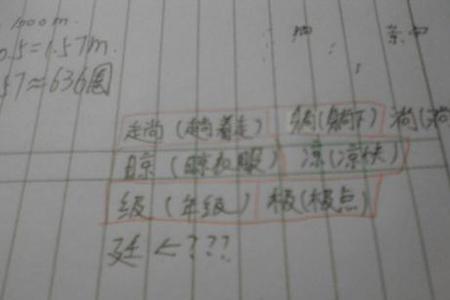 1000m.
0.5=1.57m.
57≈636圈
趟(趟着走) 躺(躺下) 淌(淌
晾(晾衣服) 凉(凉快)
级(年级) 极(极点)
廷<???